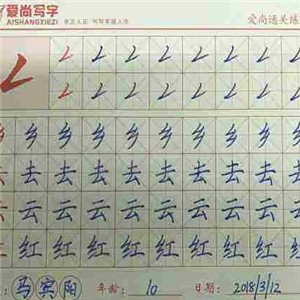 爱尚写字 爱尚通关练
AISHANGXIEZI
𠃋 𠃋 𠃋 𠃋 𠃋 𠃋 𠃋 𠃋 𠃋
𠃋 𠃋 𠃋 𠃋 𠃋 𠃋 𠃋 𠃋
乡 乡 乡 乡 乡 乡 乡 乡 乡 乡
去 去 去 去 去 去 去 去 去 去
云 云 云 云 云 云 云 云 云 云
红 红 红 红 红 红 红 红 红 红
: 马宾阳 年龄: 10 日期: 2018/3/12